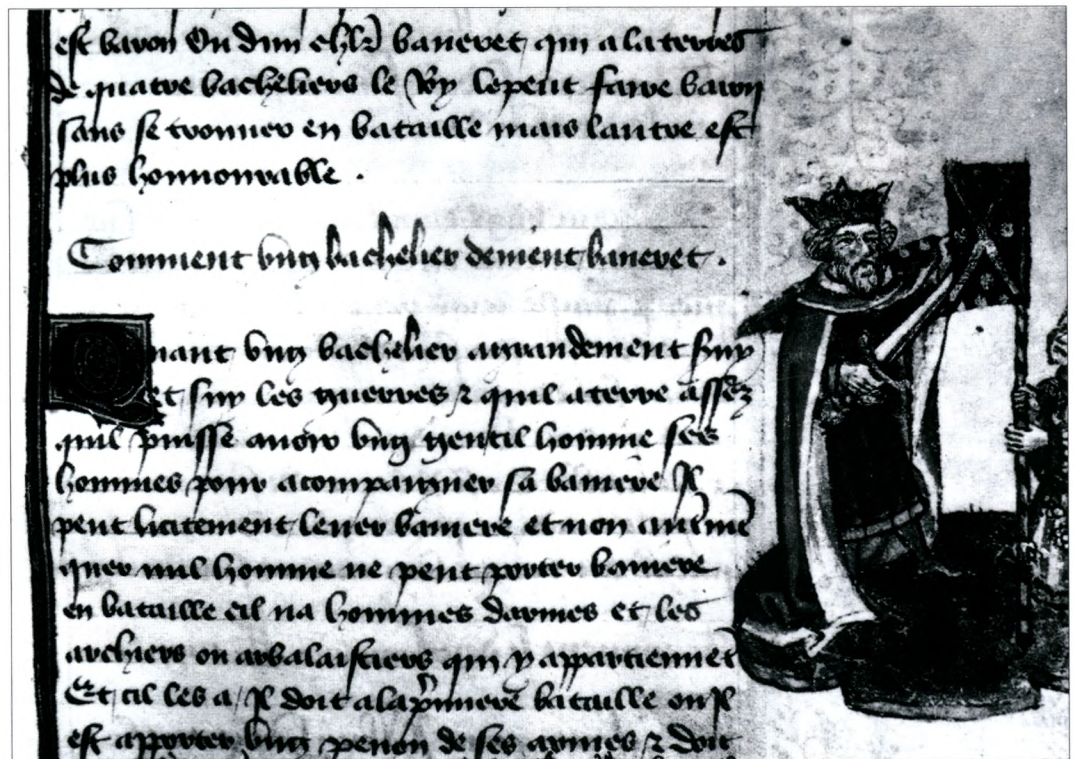 est baron Ou dun chlr baneret qui a la terres
de quatre bacheliers le Roy le peut faire baron
sans se trouuer en bataille mais lautre est
plus honnourable .
Comment vng bachelier deuient baneret .
Quant vng bachelier a grandement suy
et suy les guerres et quil a terre assez
quil puisse auoir vng gentil homme ses
hommes pour acompaigner sa baniere Il
peut licitement leuer baniere et non autrmēt
quer nul homme ne peut porter baniere
en bataille cil na hommes darmes et les
archiers ou arbalaistiers qui y appartiennēt
Et cil les a Il doit a la pmiere bataille ou Il
est apporter vng penon de ses armes et doit